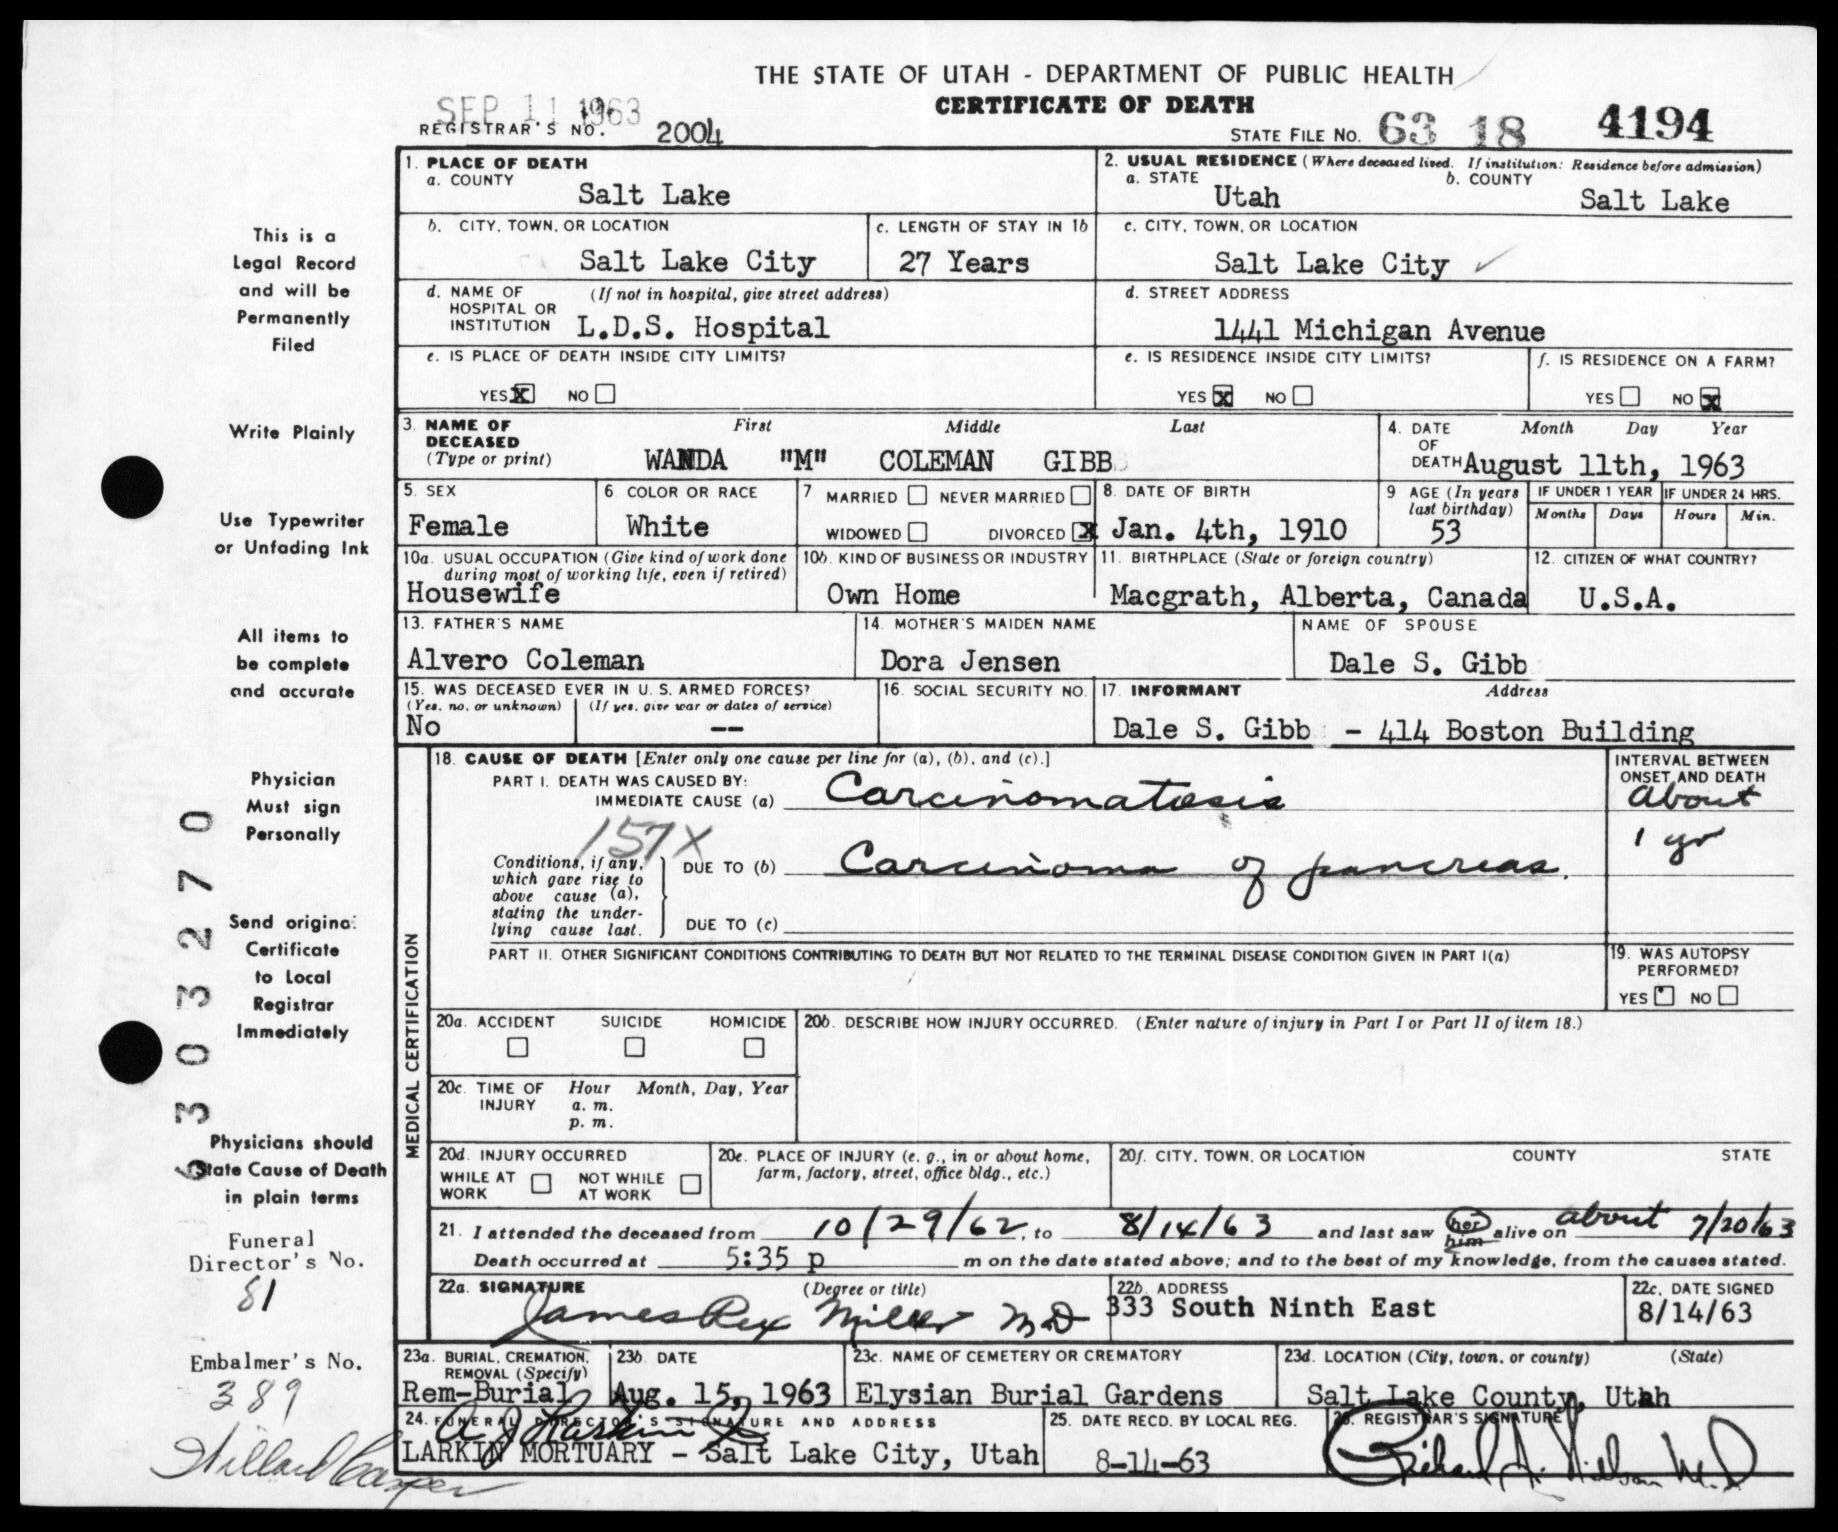 THE STATE OF UTAH - DEPARTMENT OF PUBLIC HEALTH
CERTIFICATE OF DEATH
SEP 11 1963
REGISTRAR'S NO. 2004
STATE FILE NO. 63 18 4194
1. PLACE OF DEATH
a. COUNTY
Salt Lake
2. USUAL RESIDENCE (Where deceased lived. If institution: Residence before admission)
a. STATE b. COUNTY
Utah Salt Lake
b. CITY, TOWN, OR LOCATION
Salt Lake City
c. LENGTH OF STAY IN 1b
27 Years
c. CITY, TOWN, OR LOCATION
Salt Lake City
d. NAME OF HOSPITAL OR INSTITUTION (If not in hospital, give street address)
L.D.S. Hospital
d. STREET ADDRESS
1441 Michigan Avenue
e. IS PLACE OF DEATH INSIDE CITY LIMITS?
YES X NO
e. IS RESIDENCE INSIDE CITY LIMITS?
YES X NO
f. IS RESIDENCE ON A FARM?
YES NO X
3. NAME OF DECEASED (Type or print) First Middle Last
WANDA "M" COLEMAN GIBB
4. DATE OF DEATH Month Day Year
August 11th, 1963
5. SEX
Female
6. COLOR OR RACE
White
7 MARRIED NEVER MARRIED
WIDOWED DIVORCED X
8. DATE OF BIRTH
Jan. 4th, 1910
9 AGE (In years last birthday)
53
IF UNDER 1 YEAR
Months Days
IF UNDER 24 HRS.
Hours Min.
10a. USUAL OCCUPATION (Give kind of work done during most of working life, even if retired)
Housewife
10b. KIND OF BUSINESS OR INDUSTRY
Own Home
11. BIRTHPLACE (State or foreign country)
Macgrath, Alberta, Canada
12. CITIZEN OF WHAT COUNTRY?
U.S.A.
13. FATHER'S NAME
Alvero Coleman
14. MOTHER'S MAIDEN NAME
Dora Jensen
NAME OF SPOUSE
Dale S. Gibb
15. WAS DECEASED EVER IN U. S. ARMED FORCES?
(Yes, no, or unknown) (If yes, give war or dates of service)
No --
16. SOCIAL SECURITY NO.
17. INFORMANT Address
Dale S. Gibb - 414 Boston Building
MEDICAL CERTIFICATION
18. CAUSE OF DEATH [Enter only one cause per line for (a), (b), and (c).]
PART I. DEATH WAS CAUSED BY:
IMMEDIATE CAUSE (a) Carcinomatosis
157X
Conditions, if any, which gave rise to above cause (a), stating the underlying cause last.
DUE TO (b) Carcinoma of pancreas.
DUE TO (c)
INTERVAL BETWEEN ONSET AND DEATH
About
1 yr
PART II. OTHER SIGNIFICANT CONDITIONS CONTRIBUTING TO DEATH BUT NOT RELATED TO THE TERMINAL DISEASE CONDITION GIVEN IN PART I(a)
19. WAS AUTOPSY PERFORMED?
YES NO
20a. ACCIDENT SUICIDE HOMICIDE
20b. DESCRIBE HOW INJURY OCCURRED. (Enter nature of injury in Part I or Part II of item 18.)
20c. TIME OF INJURY Hour Month, Day, Year
a. m.
p. m.
20d. INJURY OCCURRED
WHILE AT WORK NOT WHILE AT WORK
20e. PLACE OF INJURY (e. g., in or about home, farm, factory, street, office bldg., etc.)
20f. CITY, TOWN, OR LOCATION COUNTY STATE
21. I attended the deceased from 10/29/62, to 8/14/63 and last saw her him alive on about 7/20/63
Death occurred at 5:35 p m on the date stated above; and to the best of my knowledge, from the causes stated.
22a. SIGNATURE (Degree or title)
James Rex Miller MD
22b. ADDRESS
333 South Ninth East
22c. DATE SIGNED
8/14/63
23a. BURIAL, CREMATION, REMOVAL (Specify)
Rem-Burial
23b. DATE
Aug. 15, 1963
23c. NAME OF CEMETERY OR CREMATORY
Elysian Burial Gardens
23d. LOCATION (City, town, or county) (State)
Salt Lake County, Utah
24. FUNERAL DIRECTOR'S SIGNATURE AND ADDRESS
LARKIN MORTUARY - Salt Lake City, Utah
25. DATE RECD. BY LOCAL REG.
8-14-63
26. REGISTRAR'S SIGNATURE
This is a
Legal Record
and will be
Permanently
Filed
Write Plainly
Use Typewriter
or Unfading Ink
All items to
be complete
and accurate
Physician
Must sign
Personally
Send original
Certificate
to Local
Registrar
Immediately
Physicians should
State Cause of Death
in plain terms
Funeral
Director's No.
81
Embalmer's No.
389
6303270